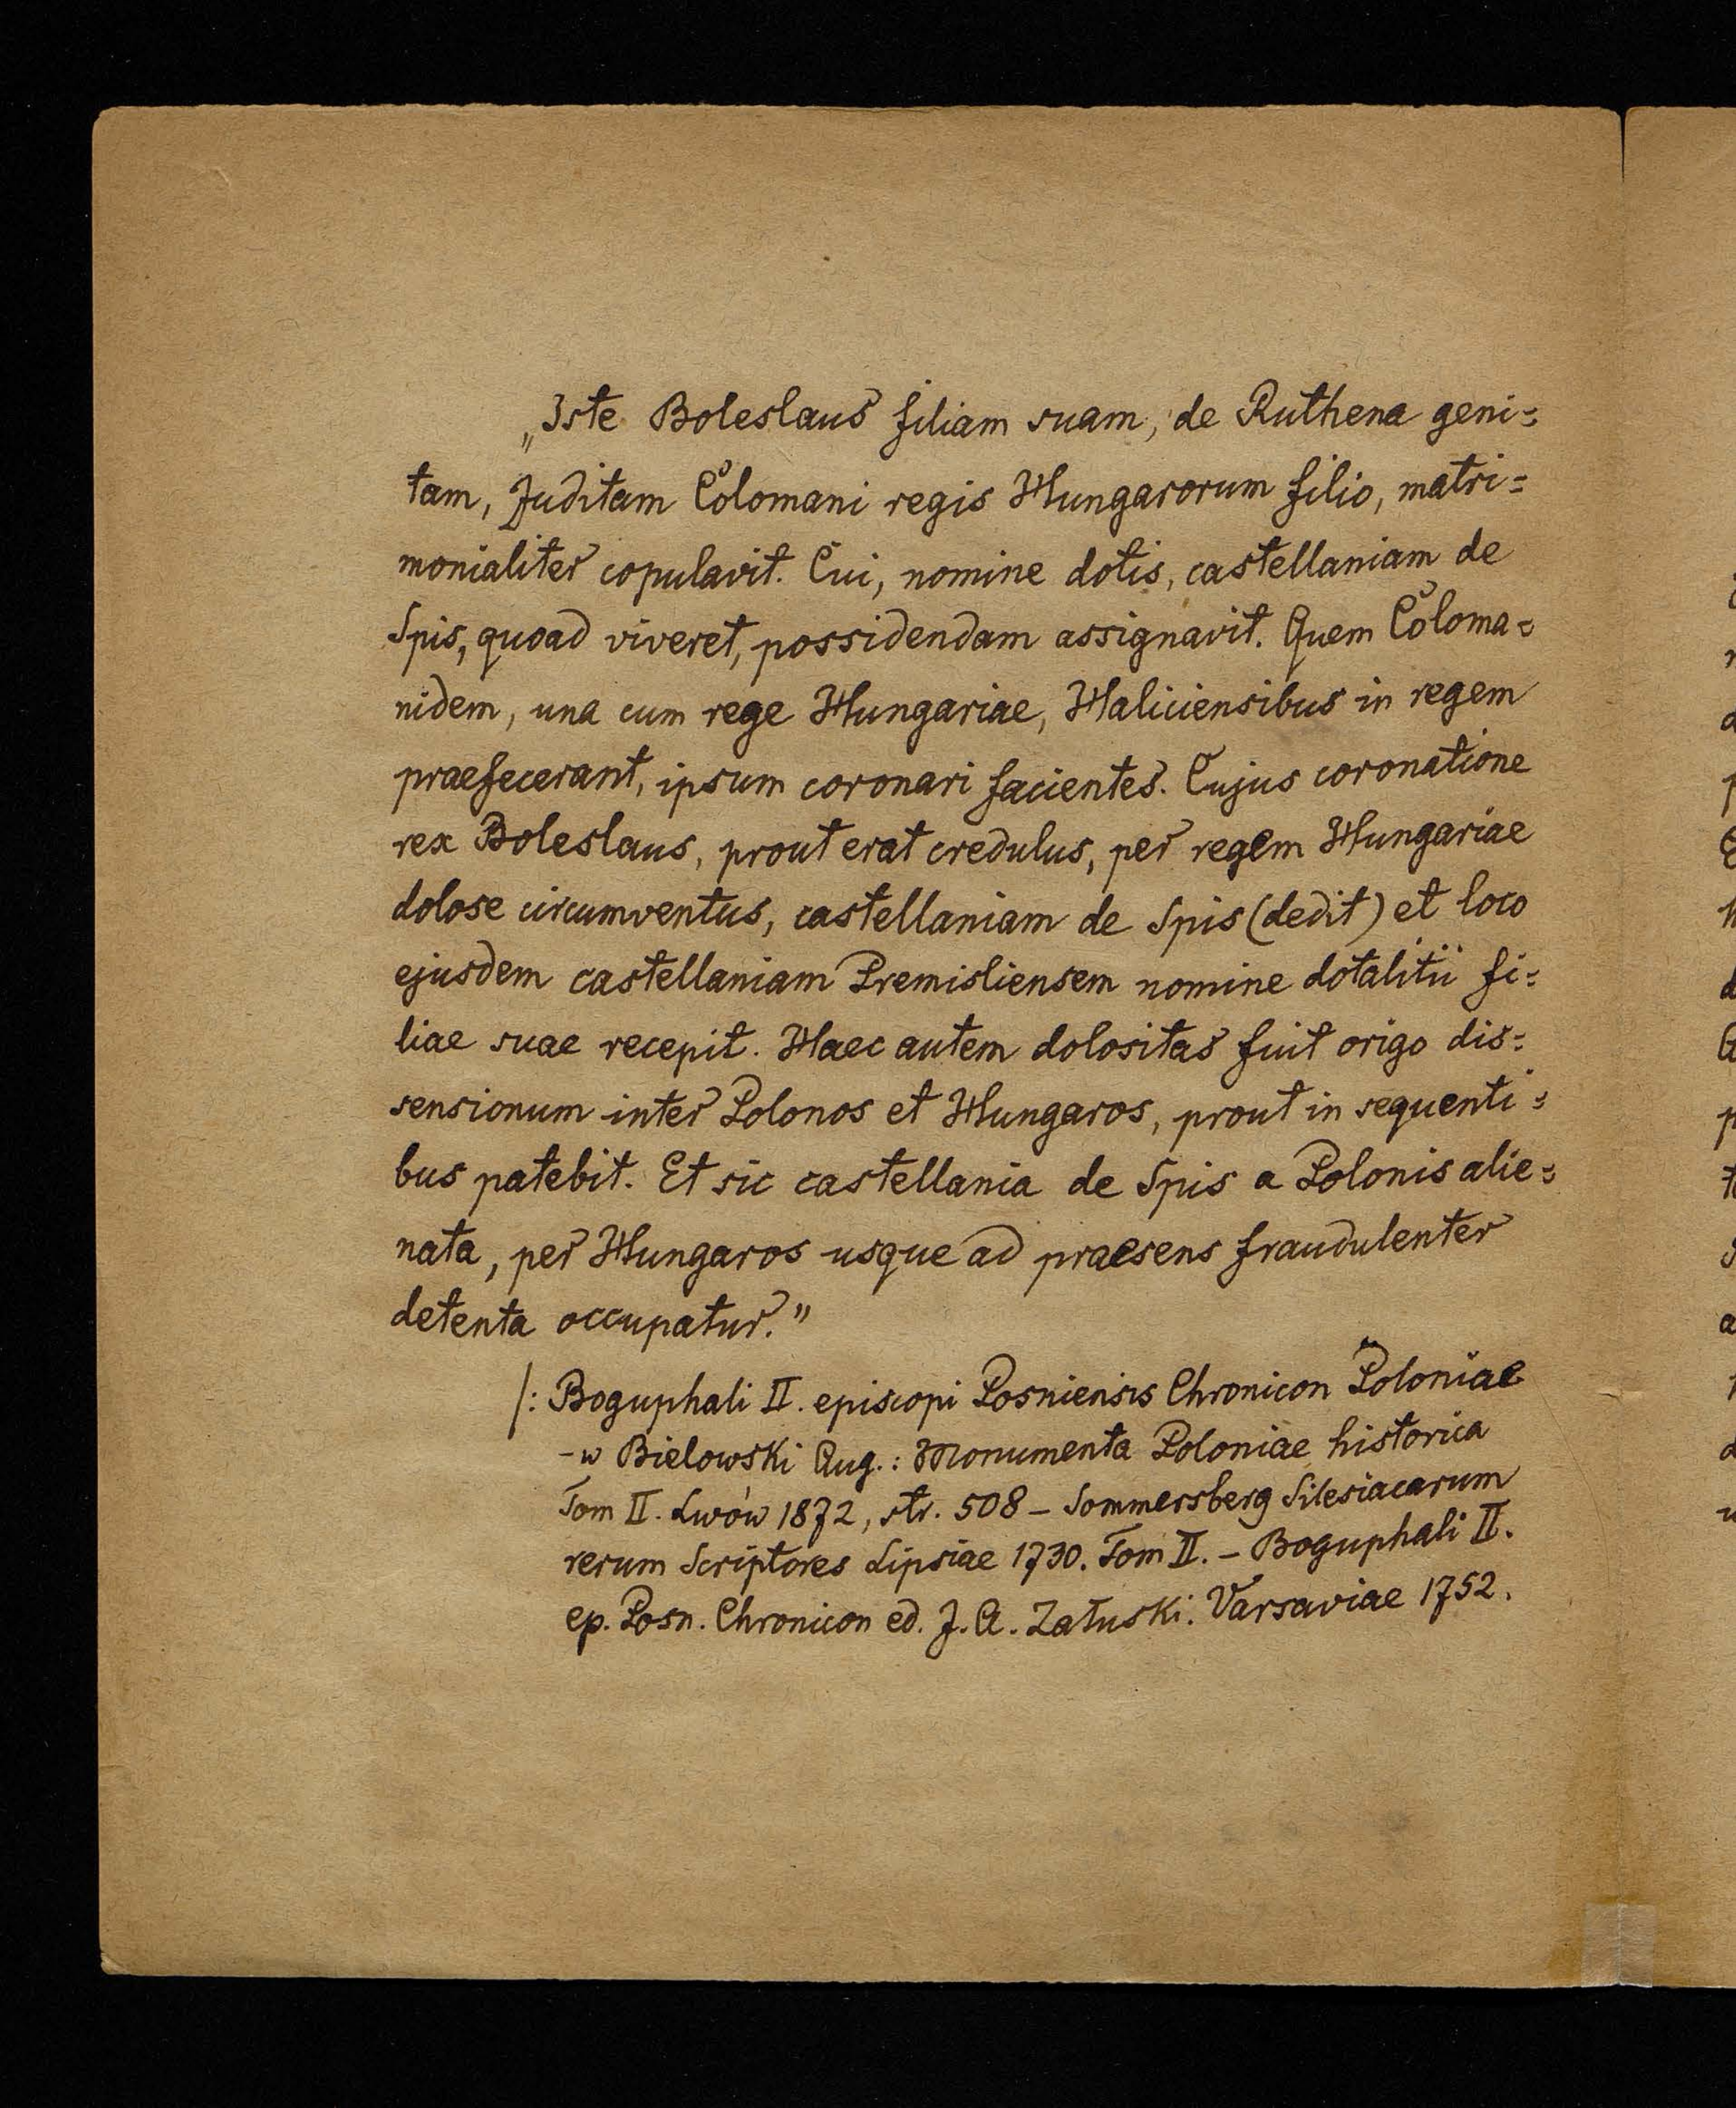 „Iste Boleslaus filiam suam, de Ruthena geni=
tam, Juditam Colomani regis Hungarorum filio, matri=
monialiter copulavit. Cui, nomine dotis, castellaniam de
Spis, quoad viveret, possidendam assignavit. Quem Coloma=
nidem, una cum rege Hungariae, Haliciensibus in regem
praefecerant, ipsum coronari facientes. Cujus coronatione
rex Boleslaus, prout erat credulus, per regem Hungariae
dolose circumventus, castellaniam de Spis (dedit) et loco
ejusdem castellaniam Premisliensem nomine dotalitii fi=
liae suae recepit. Haec autem dolositas fuit origo dis=
sensionum inter Polonos et Hungaros, prout in sequenti=
bus patebit. Et sic castellania de Spis a Polonis alie=
nata, per Hungaros usque ad praesens fraudulenter
detenta occupatur."
/: Boguphali II. episcopi Posniensis Chronicon Poloniae
- w Bielowski Aug.: Monumenta Poloniae historica
Tom II. Lwów 1872, str. 508 - Sommersberg Silesiacarum
rerum Scriptores Lipsiae 1730. Tom II. - Boguphali II.
ep. Posn. Chronicon ed. J. A. Załuski. Varsaviae 1752.